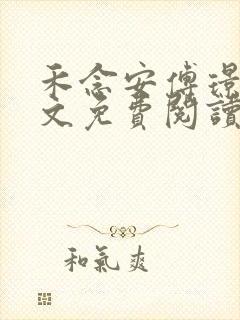 禾念安傅璟
文免費閱讀
和氣爽